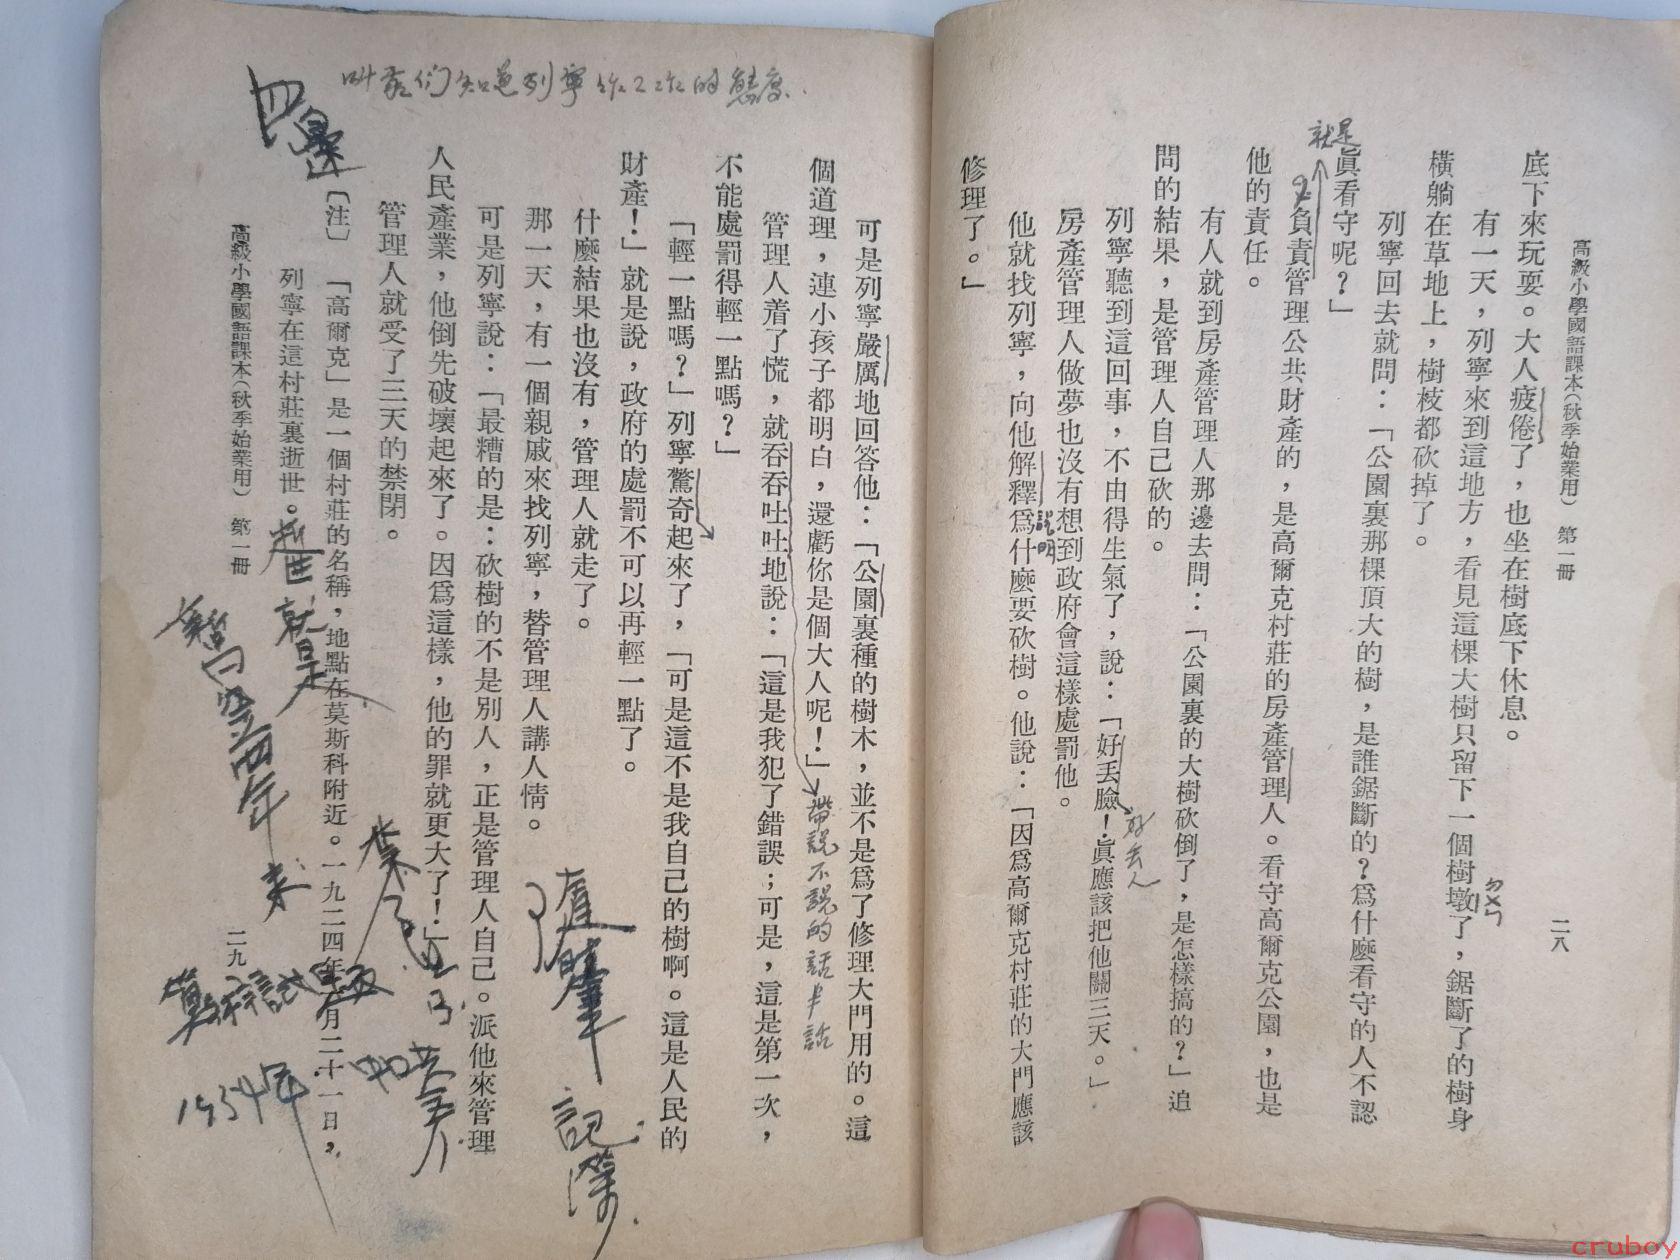 高級小學國語課本（秋季始業用）　第一冊
二八
底下來玩耍。大人疲倦了，也坐在樹底下休息。
有一天，列寧來到這地方，看見這棵大樹只留下一個樹墩了，鋸斷了的樹身
ㄉㄨㄣ
橫躺在草地上，樹枝都砍掉了。
列寧回去就問：「公園裏那棵頂大的樹，是誰鋸斷的？爲什麽看守的人不認
眞看守呢？」
就是
負責管理公共財產的，是高爾克村莊的房產管理人。看守高爾克公園，也是
他的責任。
有人就到房產管理人那邊去問：「公園裏的大樹砍倒了，是怎樣搞的？」追
問的結果，是管理人自己砍的。
列寧聽到這回事，不由得生氣了，說：「好丟臉！眞應該把他關三天。」
好丢人
房產管理人做夢也沒有想到政府會這樣處罰他。
說明
他就找列寧，向他解釋爲什麽要砍樹。他說：「因爲高爾克村莊的大門應該
修理了。」
叫我们知道列寧作工作的態度.
可是列寧嚴厲地回答他：「公園裏種的樹木，並不是爲了修理大門用的。這
個道理，連小孩子都明白，還虧你是個大人呢！」
帶説不説的話半話
管理人着了慌，就吞吞吐吐地說：「這是我犯了錯誤；可是，這是第一次，
不能處罰得輕一點嗎？」
「輕一點嗎？」列寧驚奇起來了，「可是這不是我自己的樹啊。這是人民的
財產！」就是說，政府的處罰不可以再輕一點了。
什麽結果也沒有，管理人就走了。
那一天，有一個親戚來找列寧，替管理人講人情。
可是列寧說：「最糟的是：砍樹的不是別人，正是管理人自己。派他來管理
人民產業，他倒先破壞起來了。因爲這樣，他的罪就更大了！」
管理人就受了三天的禁閉。
〔注〕　「高爾克」是一個村莊的名稱，地點在莫斯科附近。一九二四年一月二十一日，
列寧在這村莊裏逝世。
就是
四
年
來
記
1954年
高級小學國語課本（秋季始業用）　第一冊
二九
cruboy